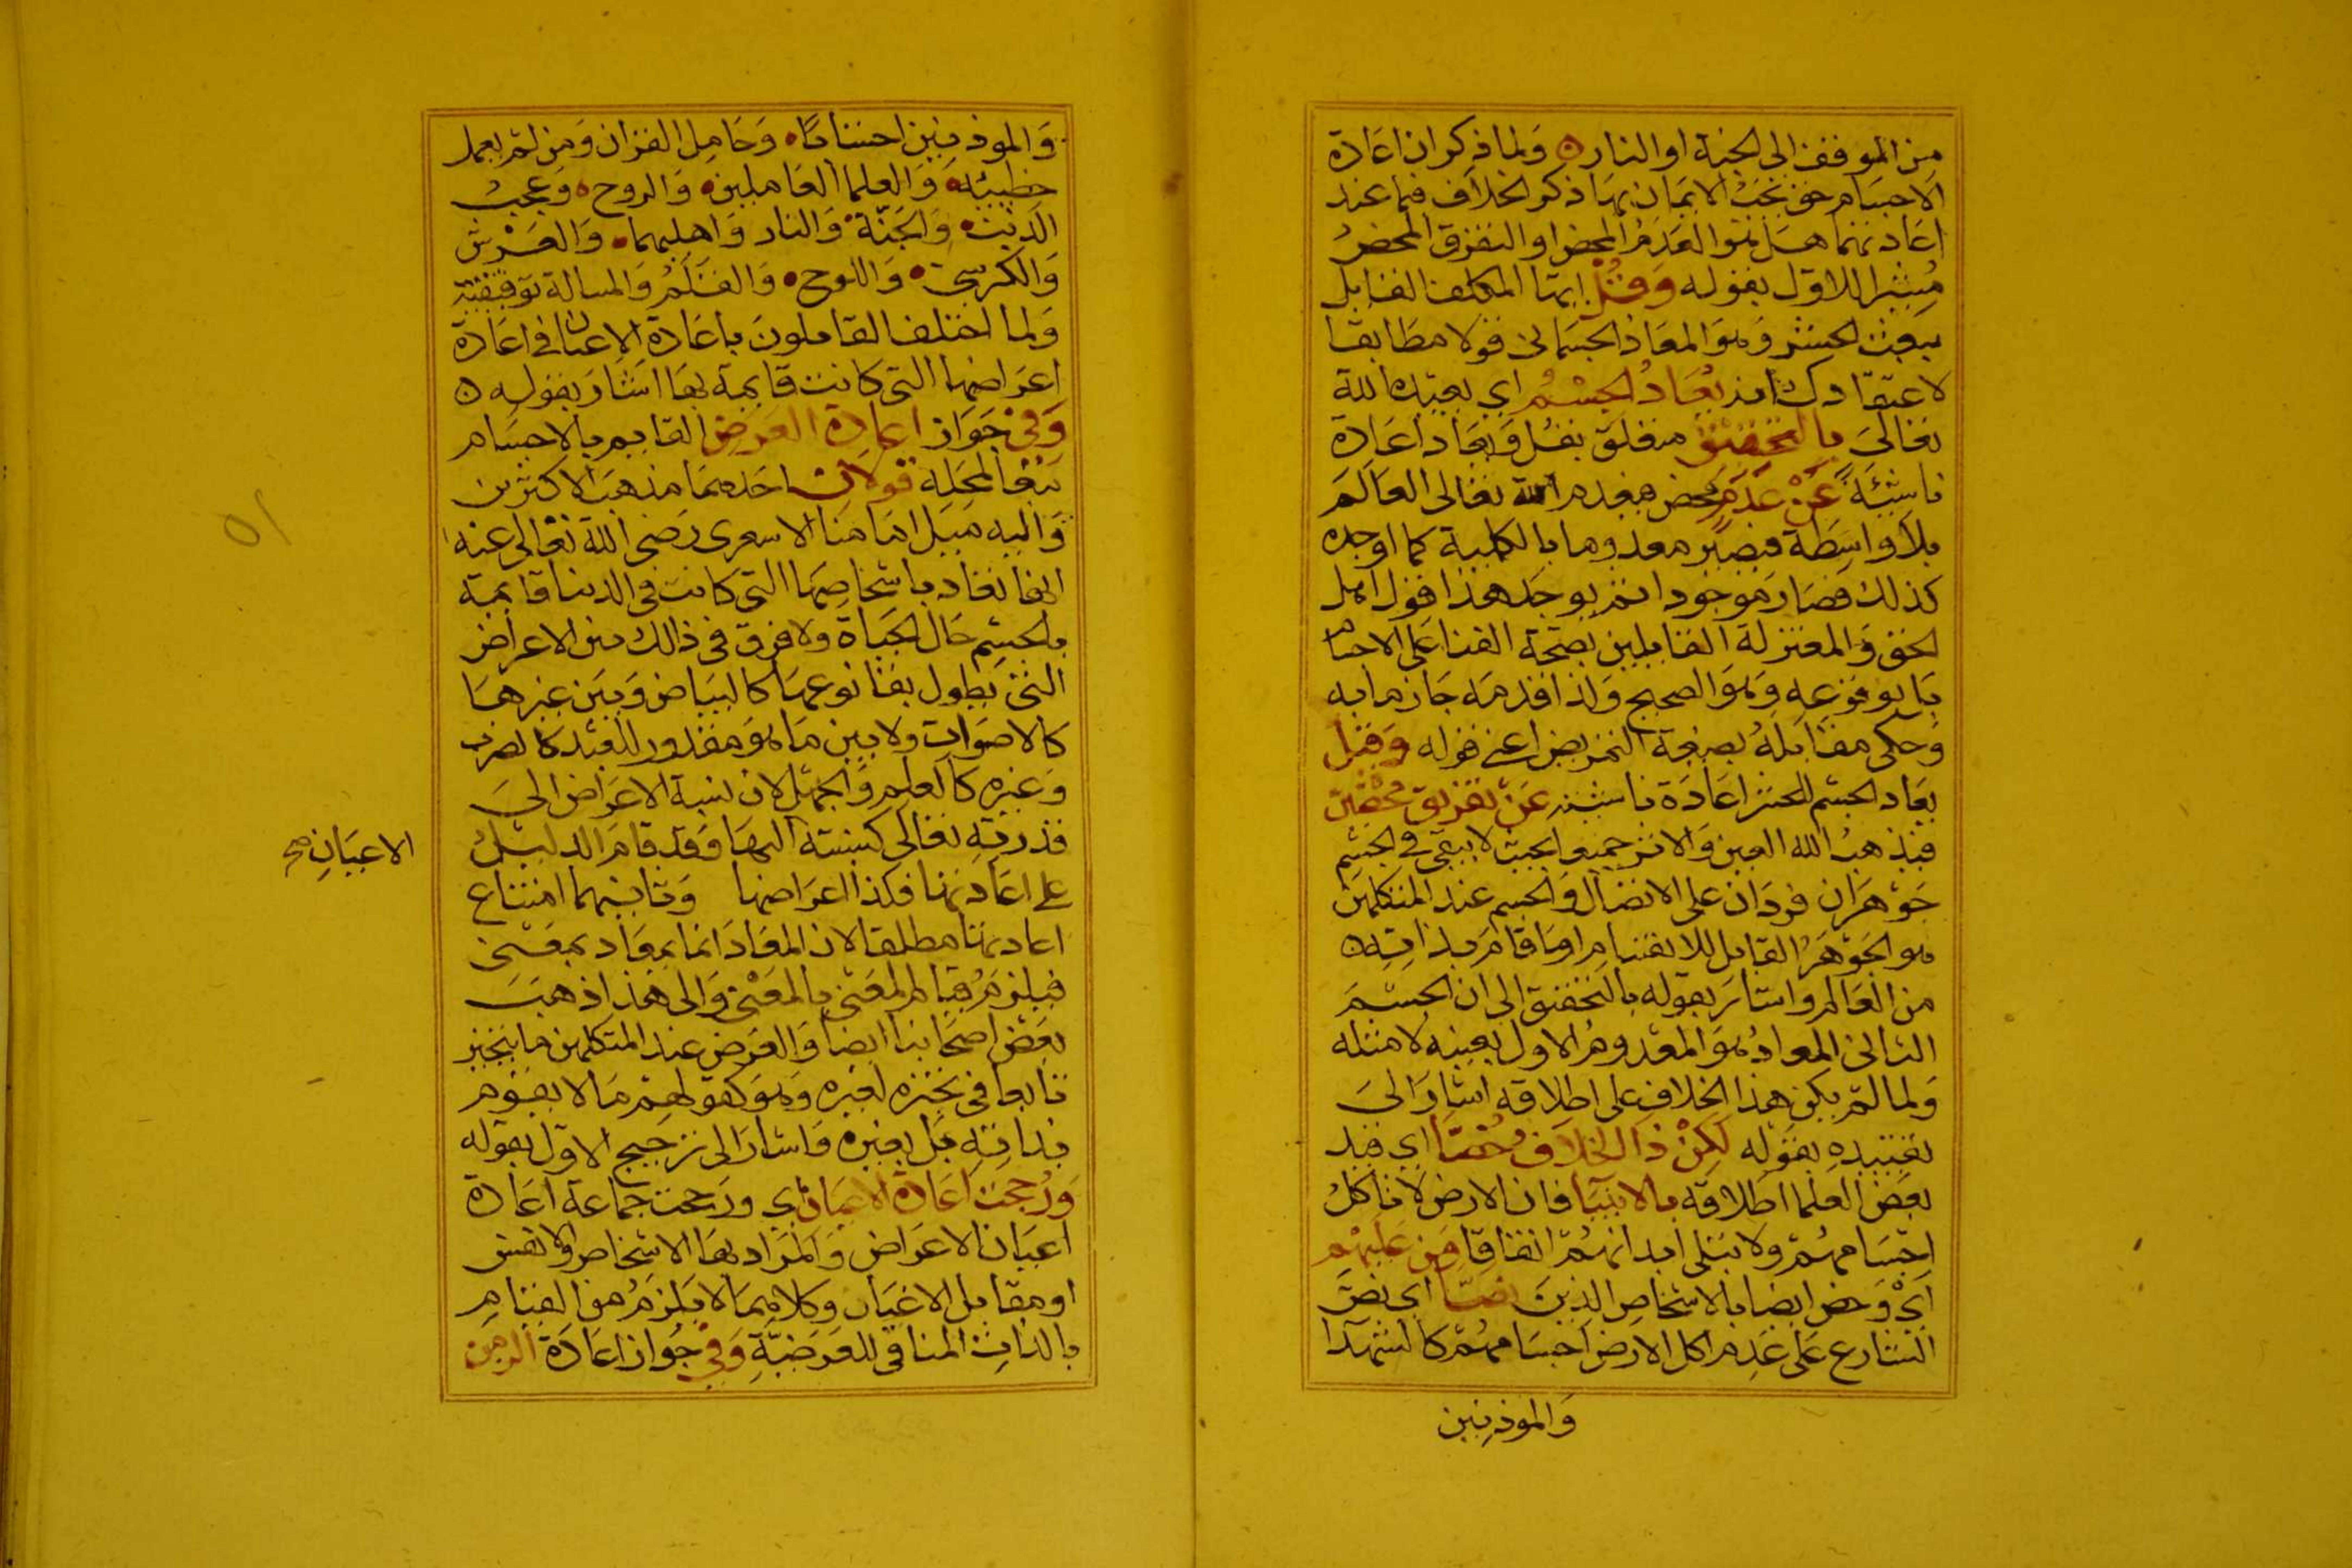 من الموقف الى الجنة او النار ٥ وَلما ذكر ان اعَادة
الاجسَام حق يجبُ الايمَان بهَا ذكر الخلاف فيما عنه
اعَادتهما هَل هو العَدمُ المحض او التفرق المحضُ
مُشيرا للاول بقوله وَقُلْ ايهَا المكلف القايل
ببعث الحشر وَهوَ المعَاد الجسمَانى قولا مطَابقا
لاعتقادك انه يُعَادُ الجِسْمُ اي يعيده الله
تعَالىَ بِالتَحقيق متعلق بقُل وَيعَاد اعَادة
ناشئَةً عَنْ عَدَمٍ محض فيعدم الله تعَالى العَالَم
بلاَ وَاسِطَة فيصير معدوما بالكلية كما اوجده
كذلك فصَار مَوجودا ثم يوجد هذا قول اهل
الحق وَالمعتزلة القايلين بصحّة الفنا على الاجسام
بَل بوقوعِه وَهوَ الصحيح وَلذا قدمَه جَازما به
وَحكى مقَابلهُ بصيغة التمريض اعنى قوله وَقيل
يعَاد الجسْم للحشر اعَادَة ناشئة عَنْ تفريق مَحْضَيْن
فيُذهبُ الله العين وَالاثر جميعا بحيث لا يبقى في الجسْم
جَوْهَرَان فردَان على الاتصَال وَالجسم عند المتكلمين
هو الجَوْهَرُ القابل للانقسَام او مَا قَامَ بذاتِه ٥
من العَالم وَاشَارَ بقوله بالتحقيق الى ان الجسْمَ
الثانى المعوادُ هوَ المعْدومُ الاول بعينه لا مثله
وَلما لمْ يكن هَذا الخلاف على اطلاقه اشَارَ الىَ
تقييده بقوْله لكِنْ ذَا الخِلاَف خُصَّا اي قيد
بعَض العلما اطلاقه بالانبيَا فان الارضَ لا تاكلُ
اجسَامهُمْ وَلا تبلى ابدَانهُمْ اتفاقا وَمَن عَليهْم
اَيْ وَخص ايضا بالاشخَاصِ الذِينَ نصَّا اي نصَّ
الشارع عَلى عَدم اكل الارض اجسَامهُمْ كالشهدَا
وَالموذنِين
وَالموذنِين احتسَابًا ٠ وَحَامِل القرَان وَمَن لمْ يعمل
خطِيئة ٠ وَالعلمَا العَاملين ٠ وَالروح ٥ وَعجبُ
الذنبْ ٠ وَالجَنّة ٠ وَالنار وَاهلِهمَا ٠ وَالعَرْش
وَالكرسي ٠ وَاللوح ٠ وَالقَلَمُ وَالمسالة توقيفيّة
وَلما اختلف القايلونَ باعَادة الاعيان في اعَادة
اعرَاضهَا التى كانت قَايمة بهَا اشَارَ بقوله ٥
وَفيْ جَوَاز اعادة العَرَض القايم بالاجسَام
تبعًا لمحَله قولان احَدهمَا مذهب الاكثرين
وَاليه مَيل امَامنا الاسعرى رَضى الله تعَالى عنه
انهَا تعَاد باشخاصِهَا التى كانت في الدنيا قايمة
بالجسْم حَال الحيَاة ولا فرق فى ذالك بين الاعرَاض
التى يطول بقا نوعهَا كالبيَاض وَبين غيرهَا
كالاصَوات ولا بين مَا هوَ مقدور للعبْد كالضرب
وَغيره كالعلِم وَالجهْل لان نسبة الاعرَاض الىَ
قدرتِه تعَالى كنسبة اليهَا وَقد قامَ الدليلُ
الاعيَانِ صح
على اعَادتهَا فكذا اعرَاضهَا وَثانيهما امتناع
اعادتهَا مطلقا لان المعَادَ انما يعَاد بمعْنى
فيلزمُ قيَام المعْنى بالمعْنى وَالى هذا ذهبَ
بعْض اصحَابنا ايضا وَالعرَض عند المتكلمين مَا يتحيز
تابعا فى تحيزه لغيره وَهوَ كقولهمْ مَا لا يقوم
بذاتِه بَل بغيره وَاشار الى ترجيح الاوّل بقوله
وَرُجحَتْ اعَادة الاعيَان اي ورَجحت جمَاعة اعَادة
اعيَان الاعرَاض وَالمرَاد بهَا الاشخاص والانفس
او مقابل الاغيَار وكلاهمَا لا يلزمُ منه القيَامِ
بالذات المنَافى للعَرَضيّةِ وَفي جَواز اعَادَة الزمن